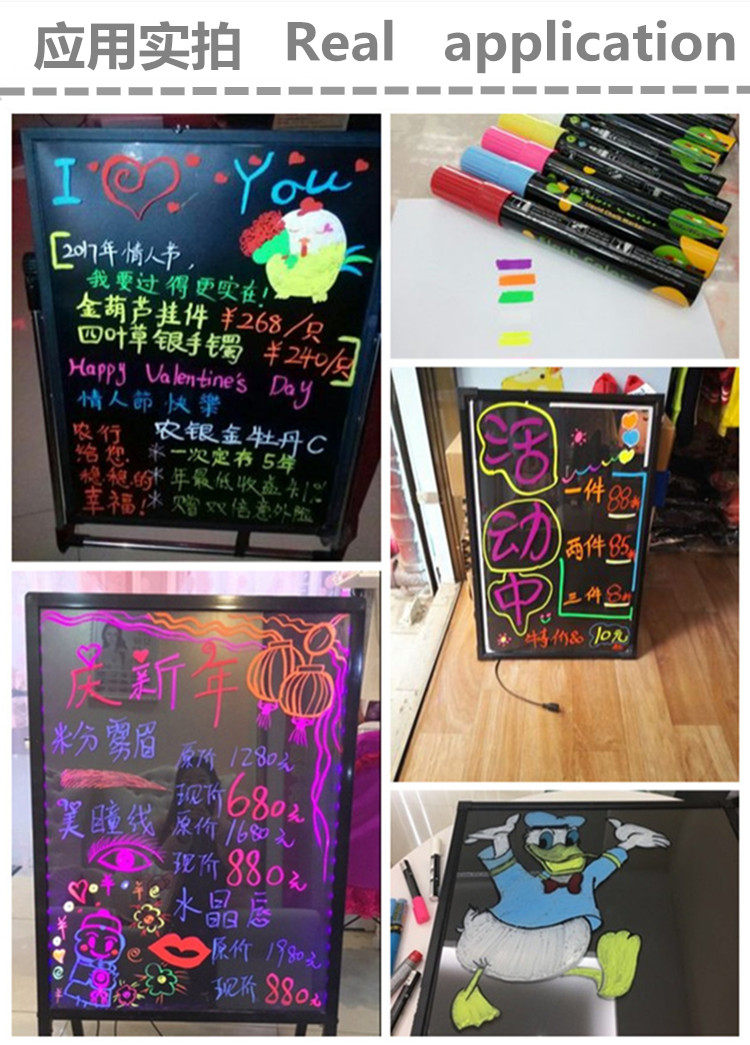 应用实拍 Real application
I You
2017年情人节，
我要过得更实在！
金葫芦挂件 ¥268/只
四叶草银手镯 ¥240/只
Happy Valentine's Day
情人節快樂
农行
给您
稳稳的
幸福！
农银金牡丹C
*一次定存5年
*年最低收益
*赠双倍意外险
Liquid Chalk Marker
活动中
一件 88
两件 85
三件 8
特价 10元
庆新年
粉分雾眉
原价 1280元
现价 680元
美瞳线
原价 1680元
现价 880元
水晶唇
原价 1980元
现价 880元